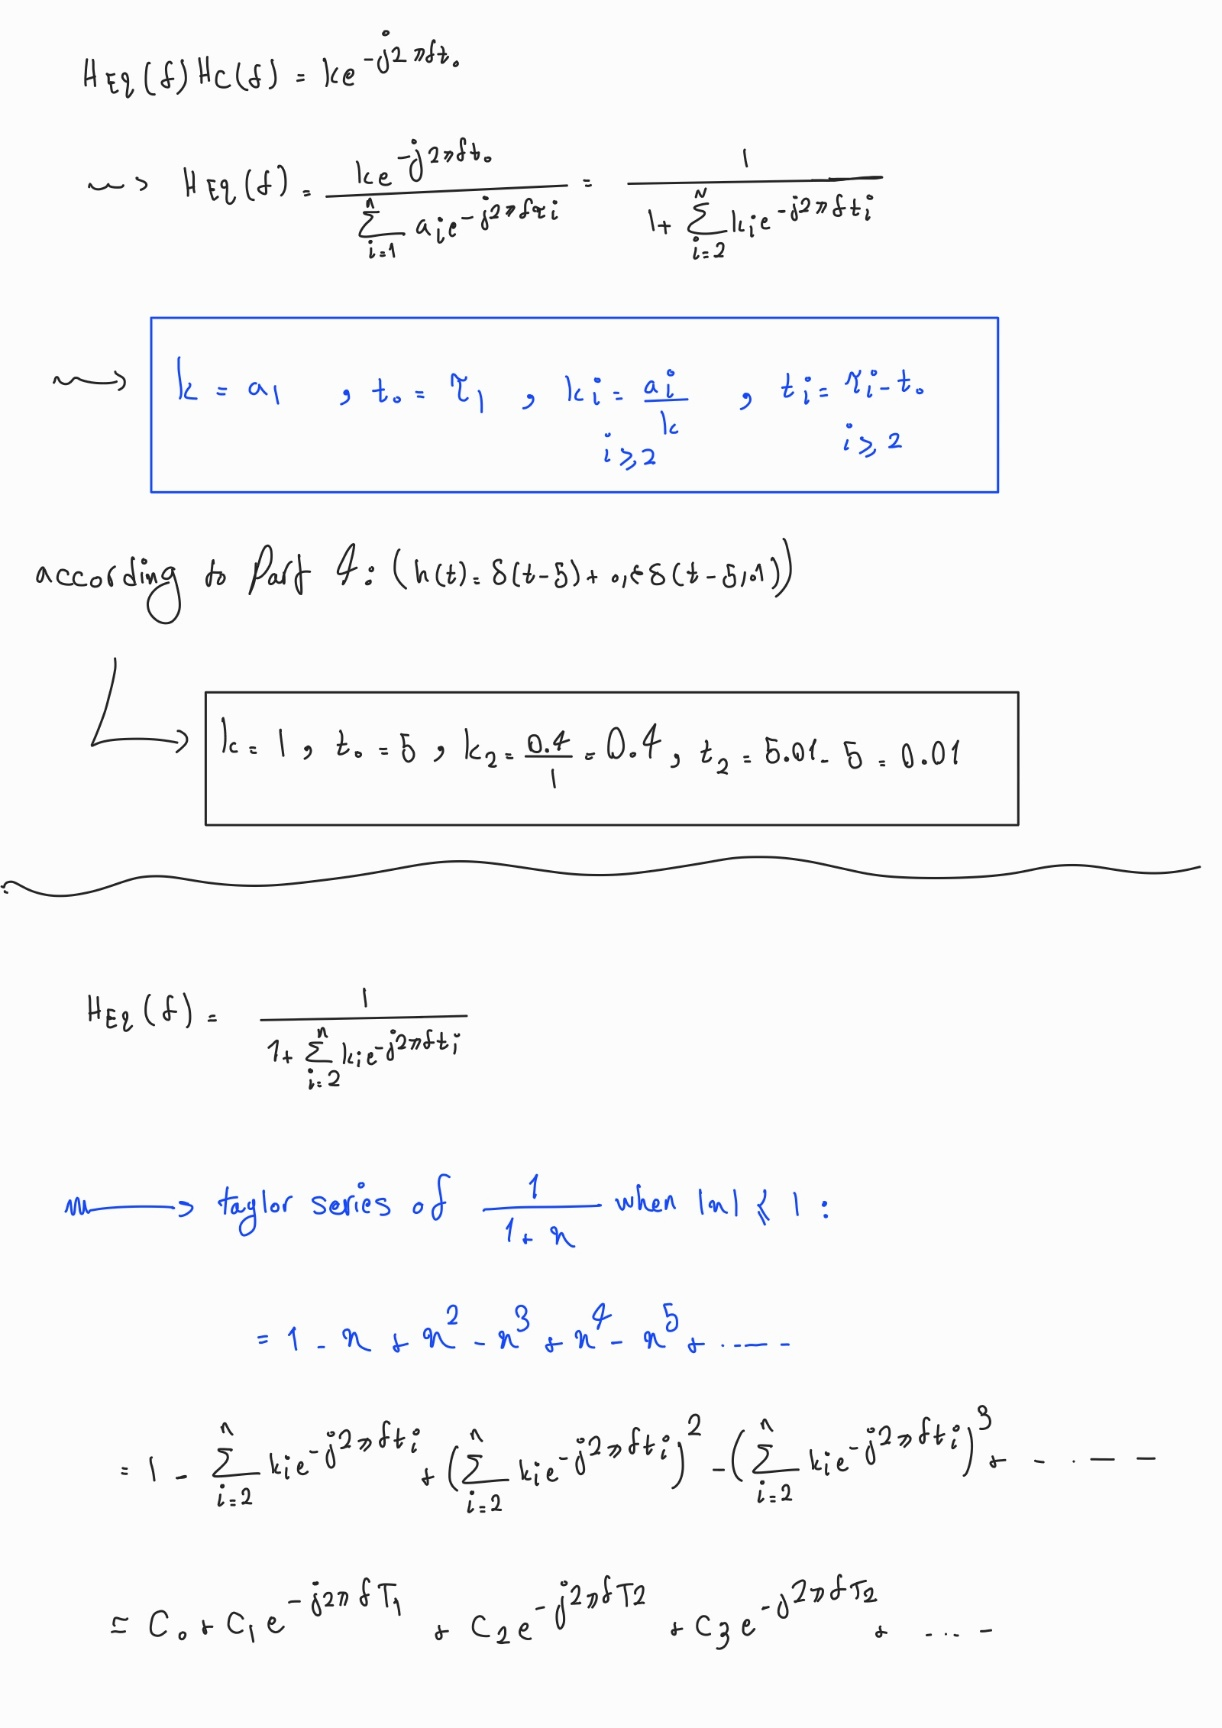 H_Eq(f) H_C(f) = k e^{-j2πft₀}
⇝ H_Eq(f) = \frac{k e^{-j2πft₀}}{\sum_{i=1}^{n} a_i e^{-j2πfτ_i}} = \frac{1}{1 + \sum_{i=2}^{N} k_i e^{-j2πft_i}}
⇝ k = a₁ , t₀ = τ₁ , k_i = \frac{a_i}{k} , t_i = τ_i - t₀
i ≥ 2 i ≥ 2
according to Part 4: (h(t) = δ(t-5) + ۰,۴δ(t-5,۰۱))
k = 1 , t₀ = 5 , k₂ = \frac{0.4}{1} = 0.4 , t₂ = 5.01 - 5 = 0.01
H_Eq(f) = \frac{1}{1 + \sum_{i=2}^{n} k_i e^{-j2πft_i}}
→ taylor series of \frac{1}{1+x} when |x| ≤ 1 :
= 1 - x + x² - x³ + x⁴ - x⁵ + ......
= 1 - \sum_{i=2}^{n} k_i e^{-j2πft_i} + (\sum_{i=2}^{n} k_i e^{-j2πft_i})² - (\sum_{i=2}^{n} k_i e^{-j2πft_i})³ + - . - -
≃ C₀ + C₁ e^{-j2πfT₁} + C₂ e^{-j2πfT2} + C₃ e^{-j2πfT₂} + - .. -